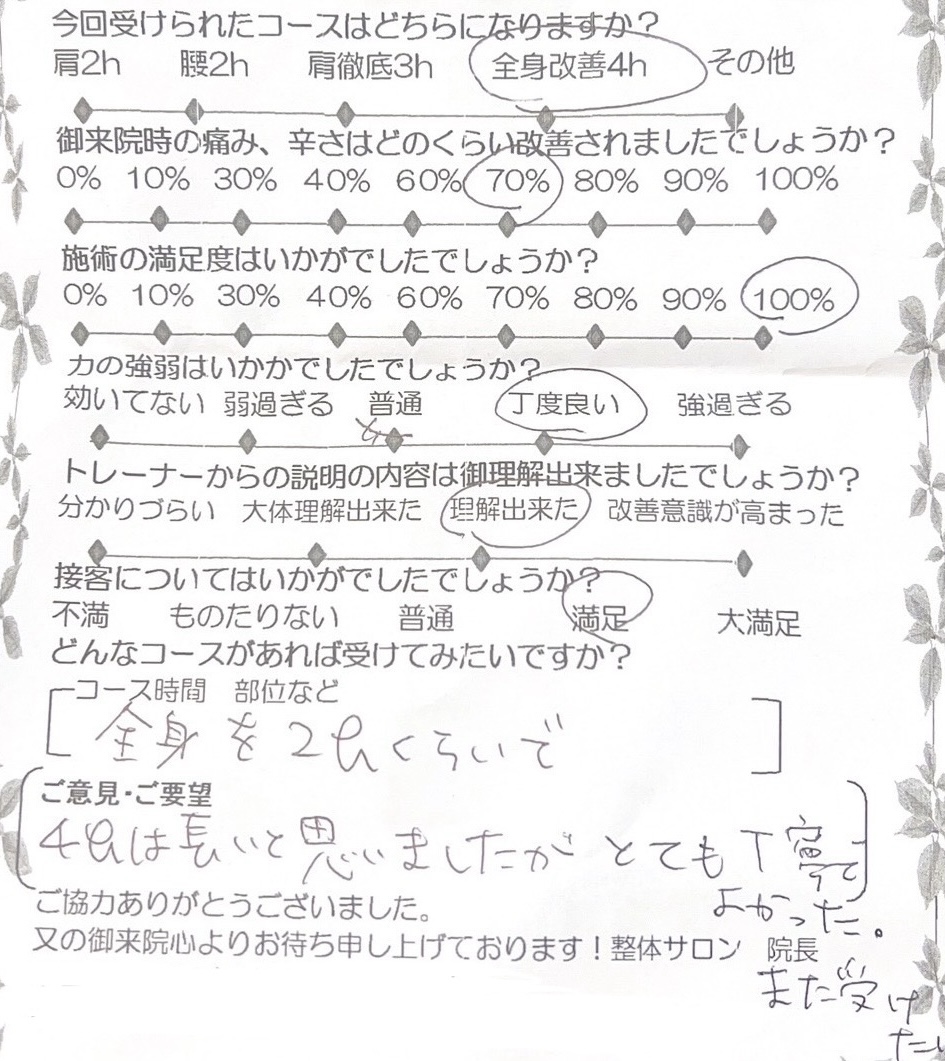 今回受けられたコースはどちらになりますか？
肩2h 腰2h 肩徹底3h 全身改善4h その他
御来院時の痛み、辛さはどのくらい改善されましたでしょうか？
0% 10% 30% 40% 60% 70% 80% 90% 100%
施術の満足度はいかがでしたでしょうか？
0% 10% 30% 40% 60% 70% 80% 90% 100%
力の強弱はいかかでしたでしょうか？
効いてない 弱過ぎる 普通 丁度良い 強過ぎる
トレーナーからの説明の内容は御理解出来ましたでしょうか？
分かりづらい 大体理解出来た 理解出来た 改善意識が高まった
接客についてはいかがでしたでしょうか？
不満 ものたりない 普通 満足 大満足
どんなコースがあれば受けてみたいですか？
コース時間 部位など
全身を2hくらいで
ご意見・ご要望
4hは長いと思いましたが とても丁寧で
よかった。
ご協力ありがとうございました。
又の御来院心よりお待ち申し上げております！整体サロン 院長
また受け
たい